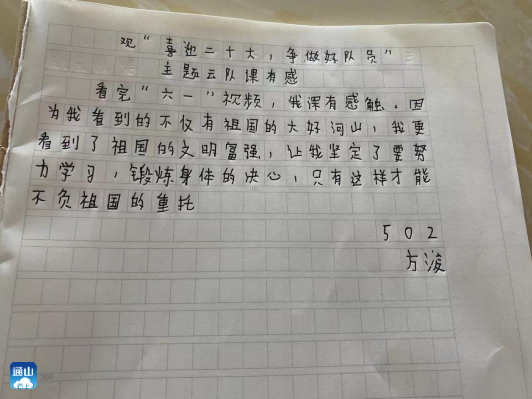 观“喜迎二十大，争做好队员”
主题云队课有感
看完“六一”视频，我深有感触。因
为我看到的不仅有祖国的大好河山，我更
看到了祖国的文明富强，让我坚定了要努
力学习，锻炼身体的决心，只有这样才能
不负祖国的重托
502
方浚
通山